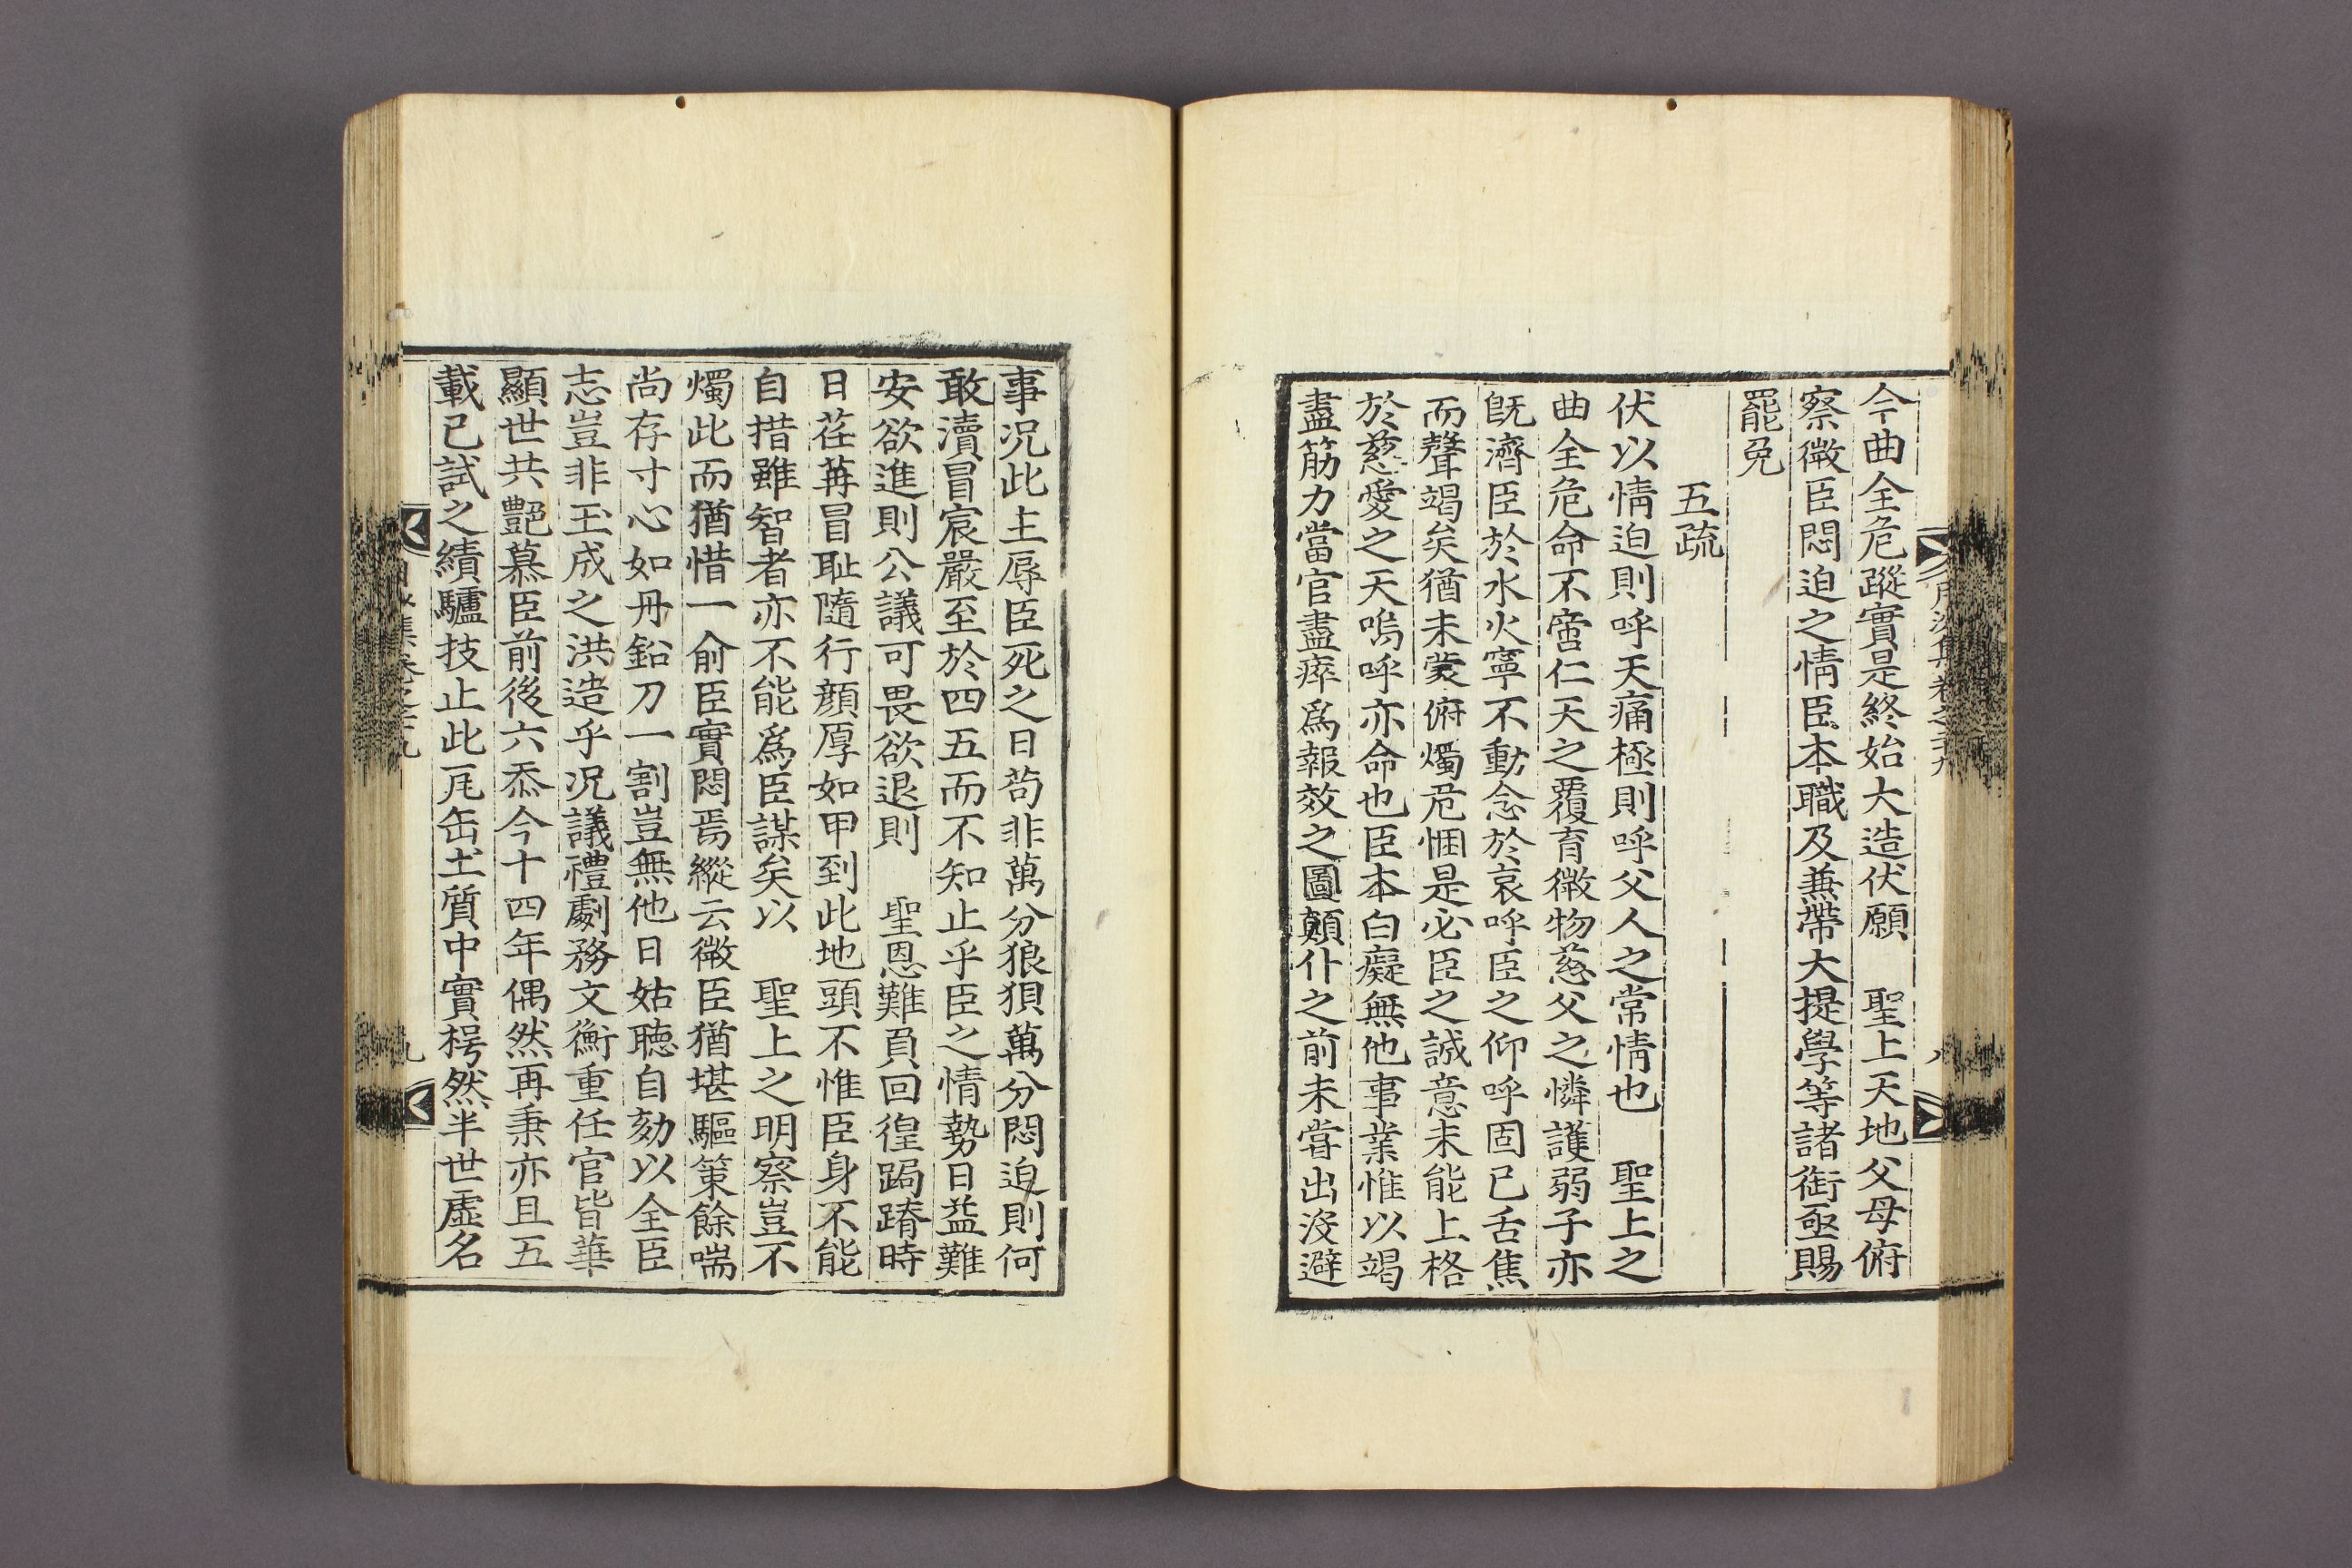 今曲全危蹤實是終始大造伏願　聖上天地父母俯
察微臣悶迫之情臣本職及兼帶大提學等諸銜亟賜
罷免
五疏
伏以情迫則呼天痛極則呼父人之常情也　聖上之
曲全危命不啻仁天之覆育微物慈父之憐護弱子亦
旣濟臣於水火寧不動念於哀呼臣之仰呼固已舌焦
而聲竭矣猶未蒙俯燭危悃是必臣之誠意未能上格
於慈愛之天嗚呼亦命也臣本白癡無他事業惟以竭
盡筋力當官盡瘁爲報效之圖顚仆之前未嘗出沒避
事况此主辱臣死之日苟非萬分狼狽萬分悶迫則何
敢瀆冒宸嚴至於四五而不知止乎臣之情勢日益難
安欲進則公議可畏欲退則　聖恩難負回徨跼蹐時
日荏苒冒耻隨行顔厚如甲到此地頭不惟臣身不能
自措雖智者亦不能爲臣謀矣以　聖上之明察豈不
燭此而猶惜一兪臣實悶焉縱云微臣猶堪驅策餘喘
尚存寸心如丹鉛刀一割豈無他日姑聽自劾以全臣
志豈非玉成之洪造乎况議禮劇務文衡重任官皆華
顯世共艶慕臣前後六忝今十四年偶然再秉亦且五
載已試之績驢技止此瓦缶土質中實枵然半世虛名